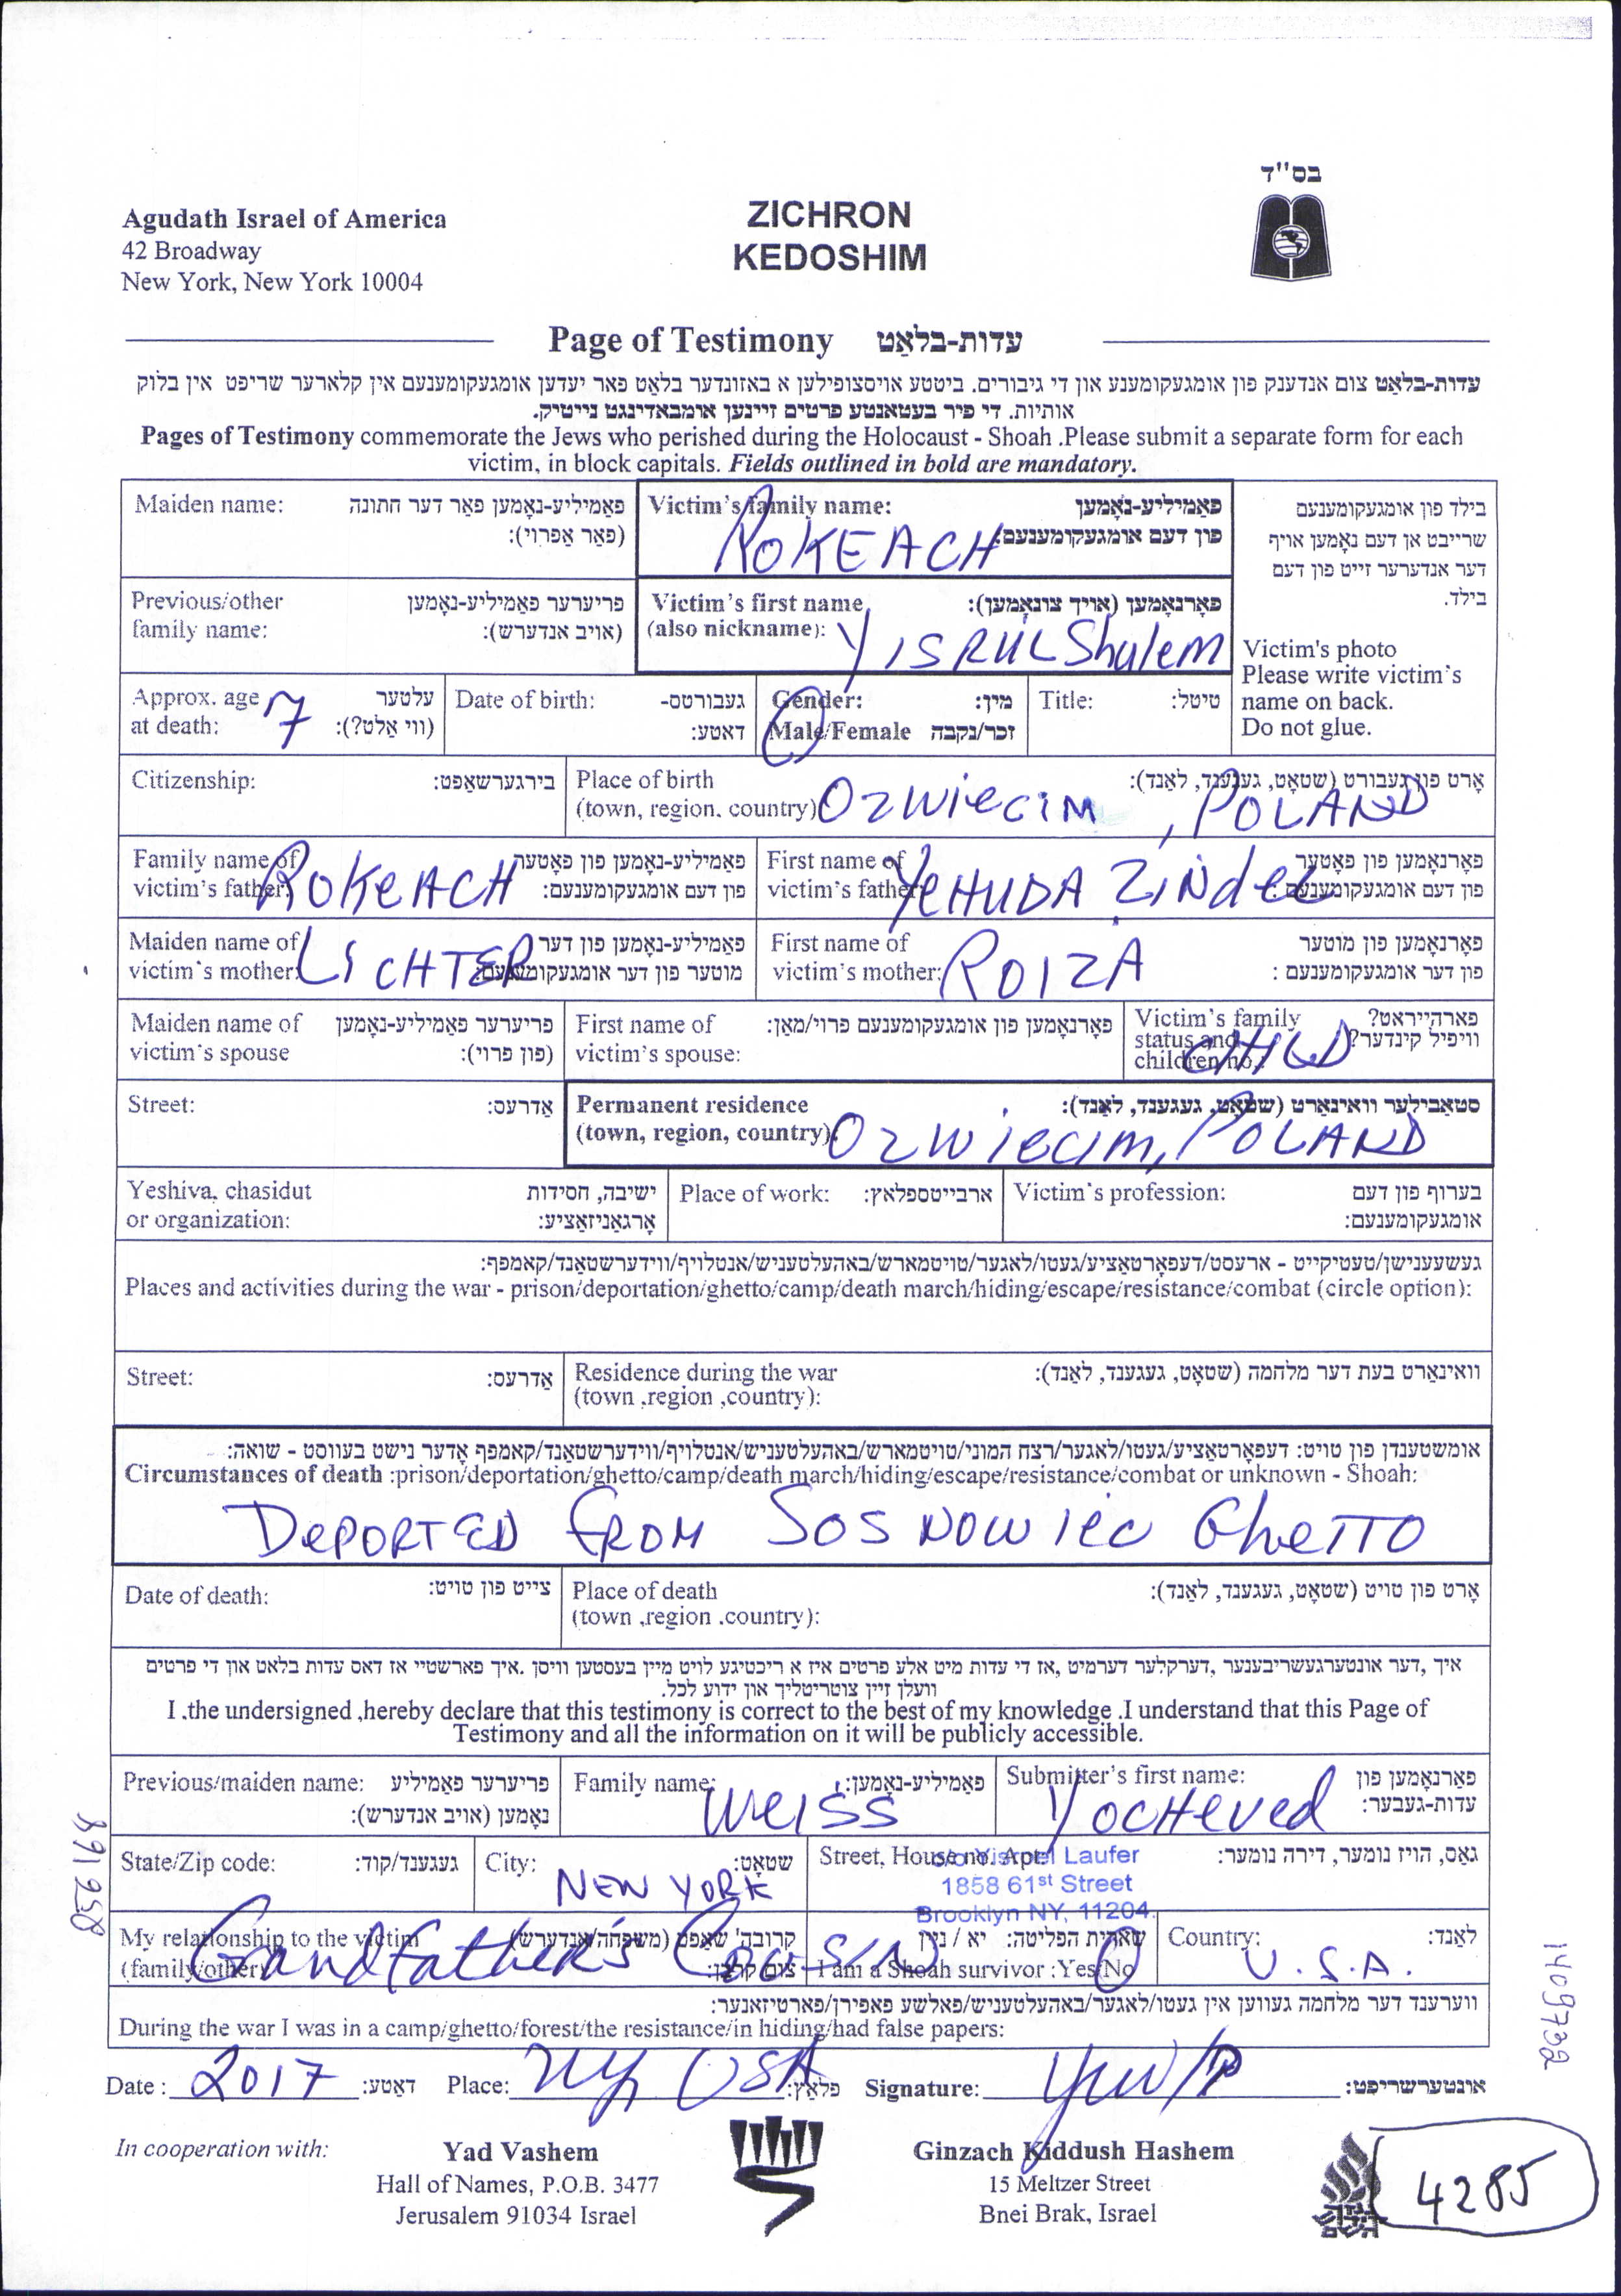 בס"ד
Agudath Israel of America
42 Broadway
New York, New York 10004
ZICHRON
KEDOSHIM
Page of Testimony עדות-בלאַט
עדות-בלאַט צום אנדענק פון אומגעקומענע און די גיבורים. ביטטע אויסצופילען א באזונדער בלאַט פאר יעדען אומגעקומענעם אין קלארער שריפט אין בלוק
אותיות. די פיר בעטאנטע פרטים זיינען אומבאדינגט נייטיק.
Pages of Testimony commemorate the Jews who perished during the Holocaust - Shoah .Please submit a separate form for each
victim, in block capitals. Fields outlined in bold are mandatory.
Maiden name: פאַמיליע-נאָמען פאַר דער חתונה
(פאַר אַפרוי):
Victim's family name: פאַמיליע-נאָמען
פון דעם אומגעקומענעם:
ROKEACH
בילד פון אומגעקומענעם
שרייבט אן דעם נאָמען אויף
דער אנדערער זייט פון דעם
בילד.
Victim's photo
Please write victim's
name on back.
Do not glue.
Previous/other פריערער פאַמיליע-נאָמען
family name: (אויב אנדערש):
Victim's first name פאָרנאָמען (אויך צונאָמען):
(also nickname): YISRUL Shulem
Approx. age עלטער
at death: 7 (ווי אַלט?):
Date of birth: געבורטס-
דאטע:
Gender: מין:
Male/Female זכר/נקבה
Title: טיטל:
Citizenship: בירגערשאַפט:
Place of birth אָרט פון געבורט (שטאָט, געגענד, לאַנד):
(town, region. country) Ozwiecim, POLAND
Family name of פאַמיליע-נאָמען פון פאָטער
victim's father: ROKEACH פון דעם אומגעקומענעם:
First name of פאָרנאָמען פון פאָטער
victim's father: YEHUDA Zindel פון דעם אומגעקומענעם:
Maiden name of פאַמיליע-נאָמען פון דער
victim's mother: LICHTER מוטער פון דער אומגעקומענעם:
First name of פאָרנאָמען פון מוטער
victim's mother: ROIZA פון דער אומגעקומענעם :
Maiden name of פריערער פאַמיליע-נאָמען
victim's spouse (פון פרוי):
First name of פאָרנאָמען פון אומגעקומענעם פרוי/מאַן:
victim's spouse:
Victim's family פארהייראט?
status and וויפיל קינדער?
children no.: CHILD
Street: אַדרעס:
Permanent residence סטאַבילער וואוינאָרט (שטאָט, געגענד, לאַנד):
(town, region, country): Ozwiecim, POLAND
Yeshiva, chasidut ישיבה, חסידות
or organization: אָרגאַניזאַציע:
Place of work: ארבייטספלאץ:
Victim's profession: בערוף פון דעם
אומגעקומענעם:
געשעענישן/טעטיקייט - ארעסט/דעפאָרטאַציע/געטו/לאגער/טויטמארש/באהעלטעניש/אנטלויף/ווידערשטאַנד/קאמפף:
Places and activities during the war - prison/deportation/ghetto/camp/death march/hiding/escape/resistance/combat (circle option):
Street: אַדרעס:
Residence during the war וואוינאָרט בעת דער מלחמה (שטאָט, געגענד, לאַנד):
(town ,region ,country):
אומשטענדן פון טויט: דעפאָרטאַציע/געטו/לאגער/רצח המוני/טויטמארש/באהעלטעניש/אנטלויף/ווידערשטאַנד/קאמפף אָדער נישט בעווסט - שואה:
Circumstances of death :prison/deportation/ghetto/camp/death march/hiding/escape/resistance/combat or unknown - Shoah:
DEPORTED FROM SOSNOWIEC GHETTO
Date of death: צייט פון טויט:
Place of death אָרט פון טויט (שטאָט, געגענד, לאַנד):
(town ,region .country):
איך, דער אונטערגעשריבענער, דערקלער דערמיט, אז די עדות מיט אלע פרטים איז א ריכטיגע לויט מיין בעסטען וויסן. איך פארשטיי אז דאס עדות בלאט און די פרטים
וועלן זיין צוטריטליך און ידוע לכל.
I .the undersigned ,hereby declare that this testimony is correct to the best of my knowledge .I understand that this Page of
Testimony and all the information on it will be publicly accessible.
Previous/maiden name: פריערער פאַמיליע
נאָמען (אויב אנדערש):
Family name: Weiss פאַמיליע-נאָמען:
Submitter's first name: פאָרנאָמען פון
Yocheved עדות-געבער:
State/Zip code: געגענד/קוד:
City: שטאָט:
NEW YORK
Street, House no. Apt. גאס, הויז נומער, דירה נומער:
c/o Yisroel Laufer
1858 61st Street
Brooklyn NY, 11204
My relationship to the victim קרובה'שאַפט (משפחה/אנדערש)
(family/other) Grandfather's Cousin צום קרבן:
שארית הפליטה: יא / ניין
I am a Shoah survivor :Yes/No
Country: לאנד:
U.S.A.
ווערענד דער מלחמה געווען אין געטו/לאגער/באהעלטעניש/פאלשע פאפירן/פארטיזאנער:
During the war I was in a camp/ghetto/forest/the resistance/in hiding/had false papers:
Date : 2017 דאַטע: Place: NY USA פלאַץ: Signature: YW/P אונטערשריפט:
In cooperation with:
Yad Vashem
Hall of Names, P.O.B. 3477
Jerusalem 91034 Israel
Ginzach Kiddush Hashem
15 Meltzer Street
Bnei Brak, Israel
4285
891958
1409732